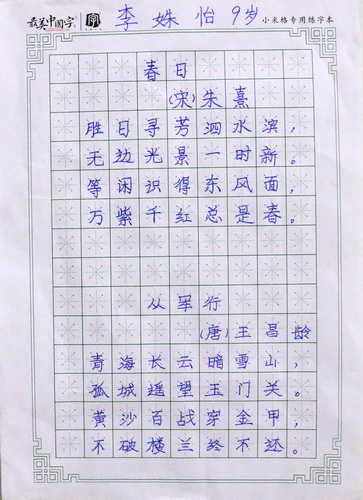 最美中国字 李姝怡 9岁 小米格专用练字本
春日
(宋)朱熹
胜日寻芳泗水滨，
无边光景一时新。
等闲识得东风面，
万紫千红总是春。
从军行
(唐)王昌龄
青海长云暗雪山，
孤城遥望玉门关。
黄沙百战穿金甲，
不破楼兰终不还。